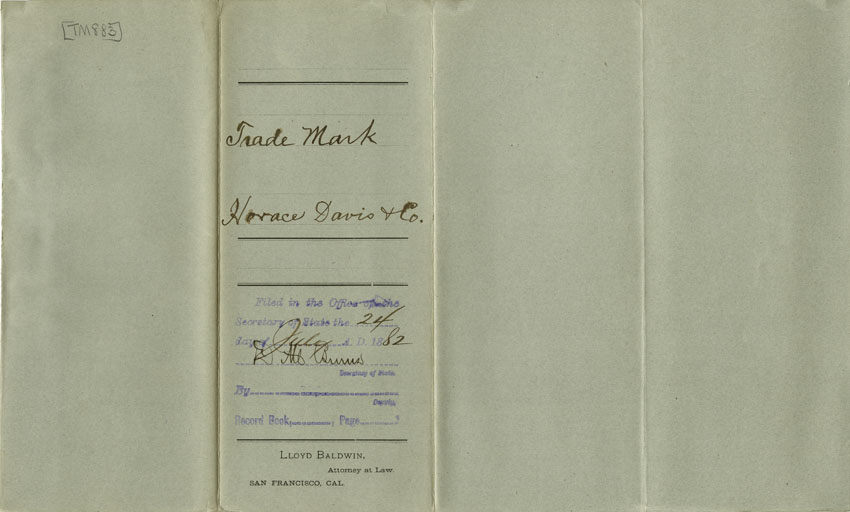 [TM883]
Trade Mark
Horace Davis & Co.
Filed in the Office of the
Secretary of State the 24
day of July A. D. 1882
D M Burns
Secretary of State.
By
Deputy.
Record Book, Page
Lloyd Baldwin,
Attorney at Law.
SAN FRANCISCO, CAL.